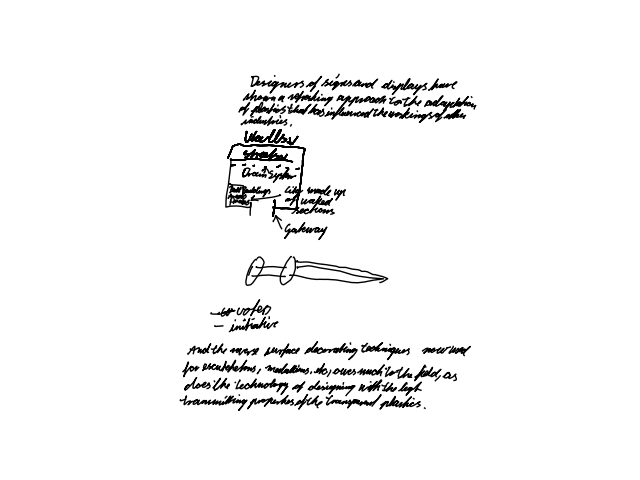 Designers of signs and displays have
shown a refreshing approach to the adaptation
of plastics that has influenced the workings of other
industries.
Walls
streets
Drain System
buildings
City made up
of walled
sections
Gateway
voted
- initiative
And the many surface decorating techniques now used
for escutcheons, medallions, etc, owes much to the field, as
does the technology of designing with the light
transmitting properties of the transparent plastics.